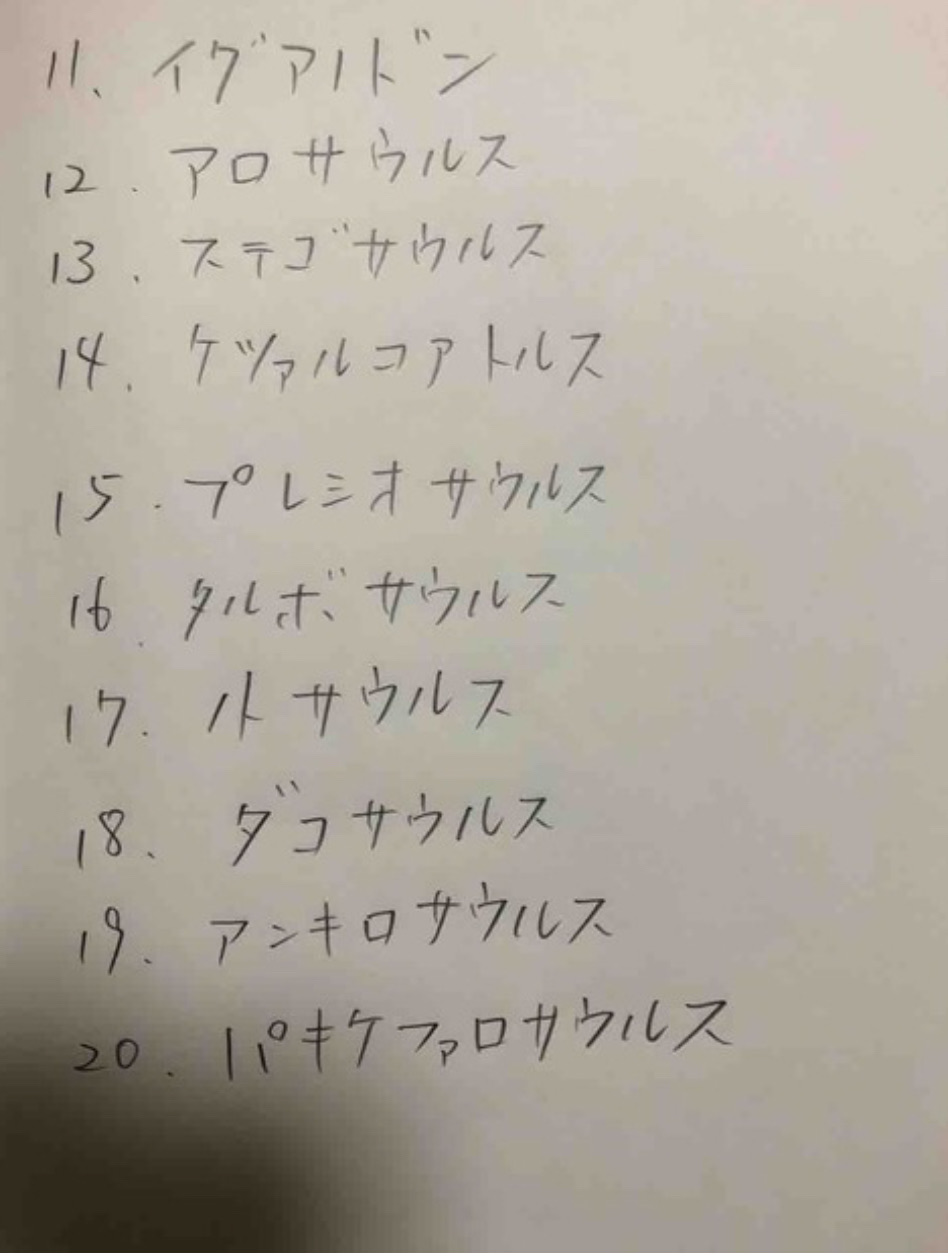 11、イグアノドン
12. アロサウルス
13. ステゴサウルス
14. ケツァルコアトルス
15. プレミオサウルス
16. タルボサウルス
17. ノトサウルス
18、ダコサウルス
19. アンキロサウルス
20. パキケファロサウルス